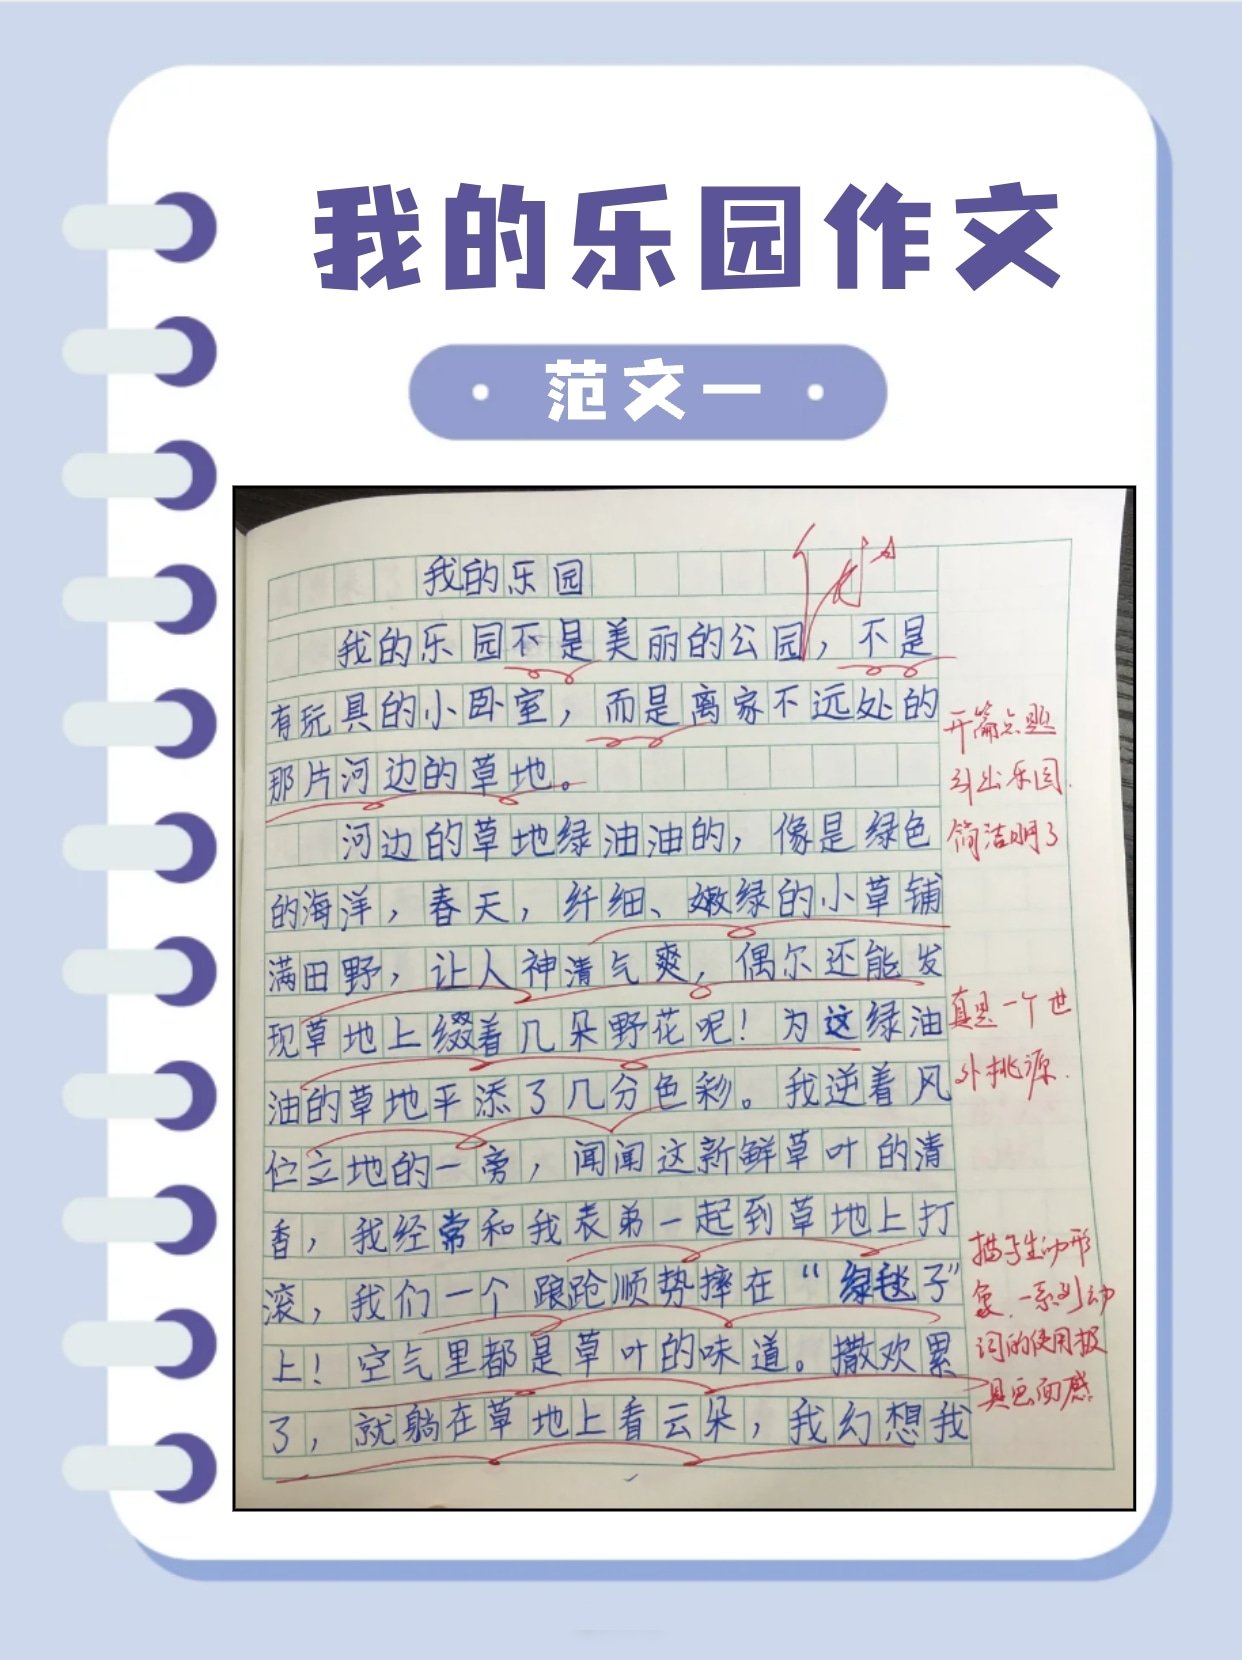 我的乐园作文
范文一
我的乐园
优
我的乐园不是美丽的公园，不是
有玩具的小卧室，而是离家不远处的
那片河边的草地。
开篇点题
引出乐园.
简洁明了
河边的草地绿油油的，像是绿色
的海洋，春天，纤细、嫩绿的小草铺
满田野，让人神清气爽，偶尔还能发
现草地上缀着几朵野花呢！为这绿油
油的草地平添了几分色彩。我逆着风
真是一个世
外桃源.
伫立地的一旁，闻闻这新鲜草叶的清
香，我经常和我表弟一起到草地上打
滚，我们一个踉跄顺势摔在“绿毯子”
上！空气里都是草叶的味道。撒欢累
了，就躺在草地上看云朵，我幻想我
描写生动形
象.一系列动
词的使用极
具画面感